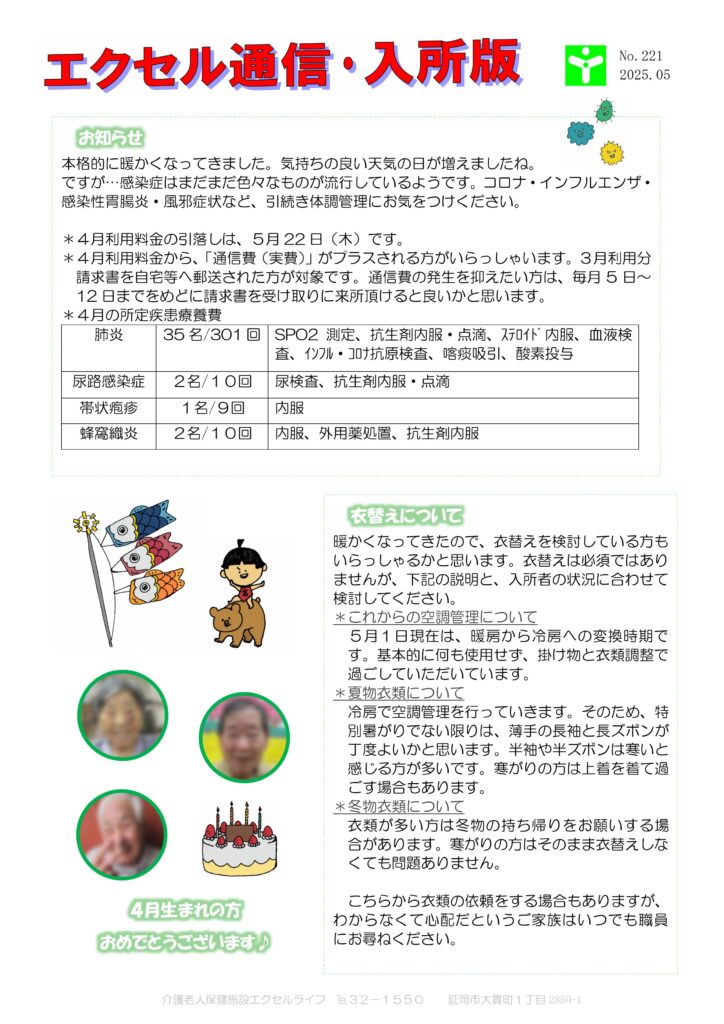 エクセル通信・入所版
No.221
2025.05
お知らせ
本格的に暖かくなってきました。気持ちの良い天気の日が増えましたね。
ですが…感染症はまだまだ色々なものが流行しているようです。コロナ・インフルエンザ・
感染性胃腸炎・風邪症状など、引続き体調管理にお気をつけください。
＊４月利用料金の引落しは、５月22日（木）です。
＊４月利用料金から、「通信費（実費）」がプラスされる方がいらっしゃいます。３月利用分
請求書を自宅等へ郵送された方が対象です。通信費の発生を抑えたい方は、毎月５日～
12日までをめどに請求書を受け取りに来所頂けると良いかと思います。
＊４月の所定疾患療養費
肺炎 35名/301回 SPO2 測定、抗生剤内服・点滴、ｽﾃﾛｲﾄﾞ内服、血液検
査、ｲﾝﾌﾙ・ｺﾛﾅ抗原検査、喀痰吸引、酸素投与
尿路感染症 ２名/１０回 尿検査、抗生剤内服・点滴
帯状疱疹 １名/９回 内服
蜂窩織炎 ２名/１０回 内服、外用薬処置、抗生剤内服
衣替えについて
暖かくなってきたので、衣替えを検討している方も
いらっしゃるかと思います。衣替えは必須ではあり
ませんが、下記の説明と、入所者の状況に合わせて
検討してください。
＊これからの空調管理について
５月１日現在は、暖房から冷房への変換時期で
す。基本的に何も使用せず、掛け物と衣類調整で
過ごしていただいています。
＊夏物衣類について
冷房で空調管理を行っていきます。そのため、特
別暑がりでない限りは、薄手の長袖と長ズボンが
丁度よいかと思います。半袖や半ズボンは寒いと
感じる方が多いです。寒がりの方は上着を着て過
ごす場合もあります。
＊冬物衣類について
衣類が多い方は冬物の持ち帰りをお願いする場
合があります。寒がりの方はそのまま衣替えしな
くても問題ありません。
こちらから衣類の依頼をする場合もありますが、
わからなくて心配だというご家族はいつでも職員
にお尋ねください。
4月生まれの方
おめでとうございます♪
介護老人保健施設エクセルライフ ℡３２－１５５０ 延岡市大貫町１丁目2850-1